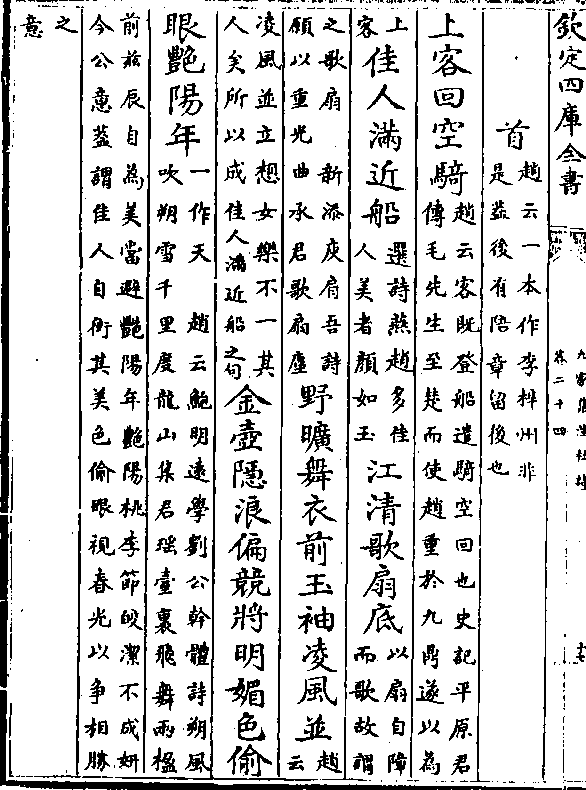 欽定四庫全書
九家集注杜詩
卷二十四
首
趙云一本作李梓州非
是蓋後有陪章留後也
上客回空騎
趙云客既登船遣騎空回也史記平原君
傳毛先生至楚而使趙重於九鼎遂以為
上
客
佳人滿近船
選詩燕趙多佳
人美者顏如玉
江清歌扇底
以扇自障
而歌故謂
之歌扇 新添庾肩吾詩
願以重光曲承君歌扇塵
野曠舞衣前玉袖凌風並
趙
云
凌風並立想女樂不一其
人矣所以成佳人滿近船之句
金壺隱浪偏競將明媚色偷
眼艷陽年
一作天 趙云鮑明遠學劉公幹體詩朔風
吹朔雪千里度龍山集君瑤臺裏飛舞兩楹
前兹辰自為美當避艷陽年艷陽桃李節皎潔不成妍
今公意蓋謂佳人自衒其美色偷眼視春光以爭相勝
之
意